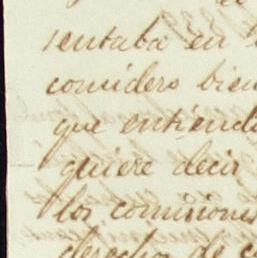 sentaba en
considero bien
que entiend
quiere decir
los comisiones
derechos de